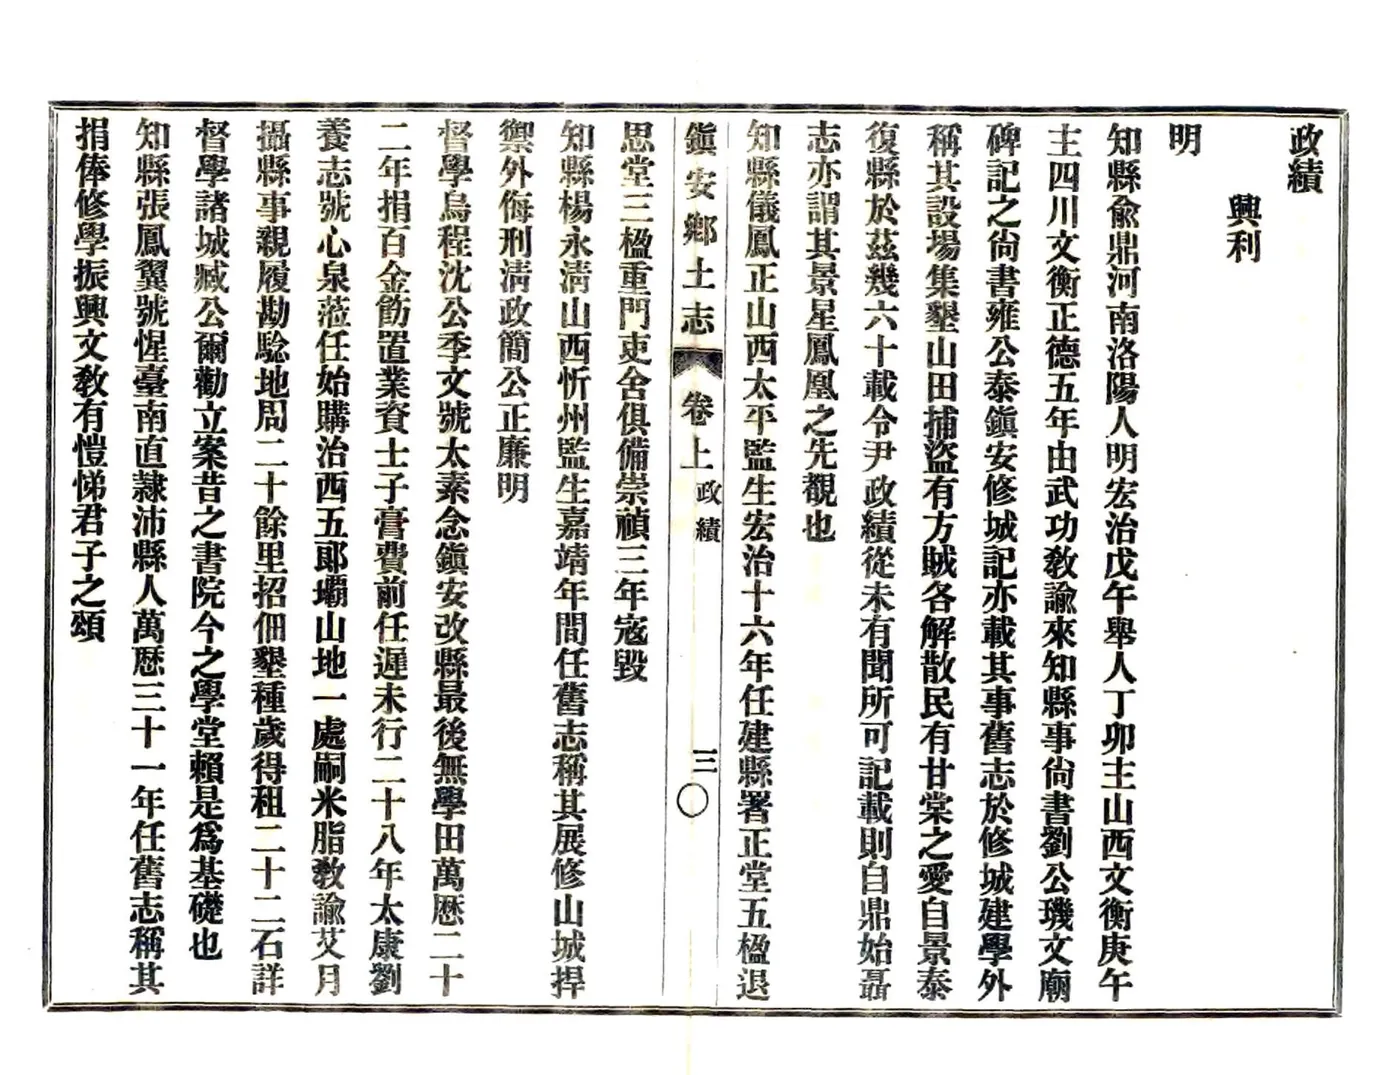 政績
興利
明
知縣兪鼎河南洛陽人明宏治戊午舉人丁卯主山西文衡庚午
主四川文衡正德五年由武功敎諭來知縣事尙書劉公璣文廟
碑記之尙書雍公泰鎭安修城記亦載其事舊志於修城建學外
稱其設場集墾山田捕盜有方賊各解散民有甘棠之愛自景泰
復縣於茲幾六十載令尹政績從未有聞所可記載則自鼎始聶
志亦謂其景星鳳凰之先覩也
知縣儀鳳正山西太平監生宏治十六年任建縣署正堂五楹退
鎭安鄕土志 卷上 政績 三〇
思堂三楹重門吏舍俱備崇禎三年寇毀
知縣楊永淸山西忻州監生嘉靖年間任舊志稱其展修山城捍
禦外侮刑淸政簡公正廉明
督學烏程沈公季文號太素念鎭安改縣最後無學田萬厯二十
二年捐百金飭置業資士子膏費前任遲未行二十八年太康劉
養志號心泉蒞任始購治西五郞壩山地一處嗣米脂敎諭艾月
攝縣事親履勘騐地周二十餘里招佃墾種歲得租二十二石詳
督學諸城臧公爾勸立案昔之書院今之學堂賴是爲基礎也
知縣張鳳翼號惺臺南直隷沛縣人萬厯三十一年任舊志稱其
捐俸修學振興文敎有愷悌君子之頌